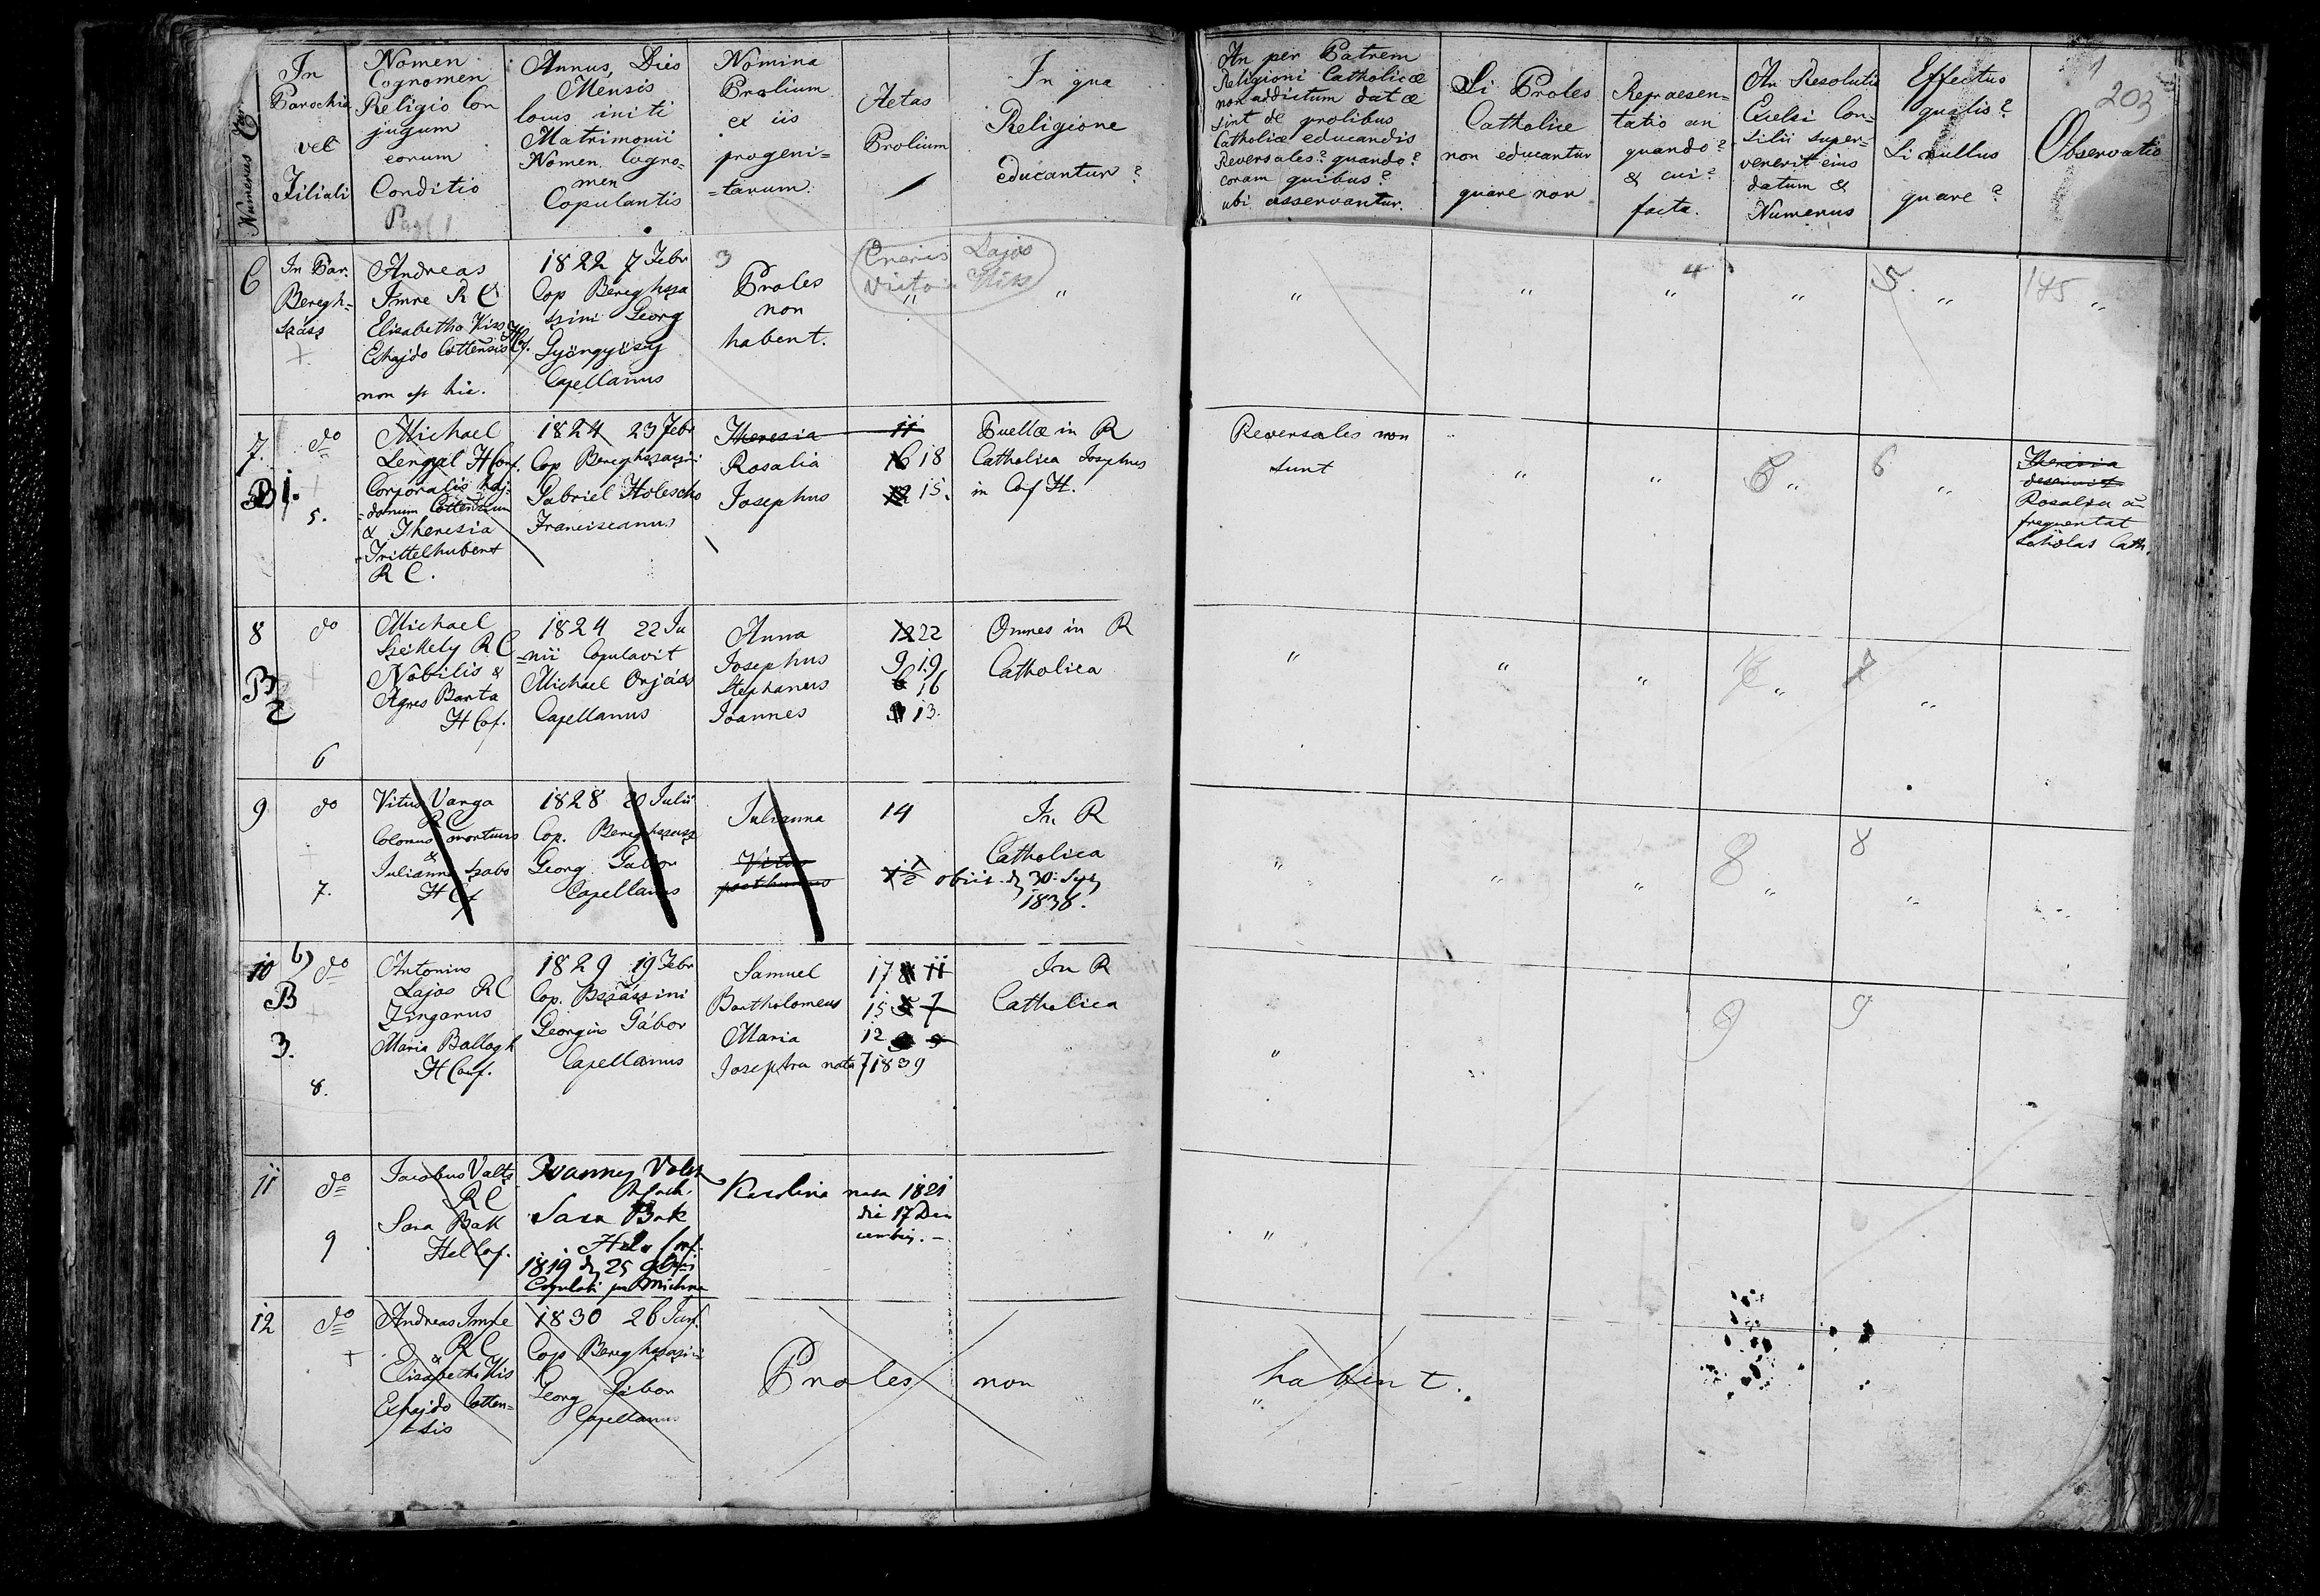 Numerus Cur.
In
Parochia
vel
Filiali
Nomen
Cognomen
Religio Con
jugum
eorum
Conditio
Annus, Dies
Mensis
locus initi
Matrimonii
Nomen Cogno-
men
Copulantis
Nomina
Prolium
ex iis
progeni=
=tarum.
Aetas
Prolium
In qua
Religione
educantur?
An per Patrem
Religioni Catholicæ
non addictum datæ
sint de prolibus
Catholice educandis
Reversales? quando?
coram quibus?
ubi asservantur.
Si Proles
Catholice
non educantur
quare non
Repraesen-
tatio an
quando?
& cui?
facta.
An Resolutio
Excelsi Con-
silii super-
venerit eius
datum &
Numerus
Effectus
qualis?
Si nullus
quare?
1
203
Observatio
6
In Par.
Beregh-
szász
Andreas
Imre R C
Elisabetha Kiss H Cf.
Exhajdo Cottensis
non est hic.
1822 7 Febr
Cop Bereghsza
szini Georg
Gyöngyösy
Capellanus
3
Proles
non
habent.
Lajos
" "
" " 4 " " " 145 "
7.
B 1.
do
5.
Michael
Lengyel H Conf.
Corporalis haj-
=donum Cottensium
& Theresia
Trittelhubert
R C.
1824 23 Febr
Cop Bereghszaszini
Gabriel Holescho
Franciscanus
Theresia 11
Rosalia 16 18
Josephus 12 15.
Puellæ in R
Catholica Josephus
in Cof H.
Reversales non
sunt
" " 6 " 6 "
Theresia
Rosalia
frequentat
scholas Cath.
8
B
2
do
6
Michael
Székely R C
Nobilis &
Agnes Barta
H Cof.
1824 22 Ju
=nii Copulavit
Michael Orjács
Capellanus
Anna 12 22
Josephus 9 19
Stephanus 16
Joannes 13.
Omnes in R
Catholica
" " " " "
9
do
7.
Vitus Varga
R C
Colonus mortuus
&
Julianna Szabo
H Cf
1828 20 Julii
Cop. Bereghszasz
Georg Gabor
Capellanus
Julianna 14
Vitus
posthumus
In R
Catholica
obiit d 30 Sept
1838.
" " " 8 " 8 "
10
B
3.
b) do
8.
Antonius
Lajos R C
Zingarus
Maria Ballogh
H Conf.
1829 19 Febr
Cop. Bszászini
Georgius Gábor
Capellanus
Samuel 17 8 11
Bartholomeus 15 7
Maria 12 9
Josepha nata 7 1839
In R
Catholica
" 9 9
11
do
9
Jacobus Valts
R C
Sara Bak
Hel Cof.
Sara Bak
Hel. Conf.
1819 d 25
Copulati per
Karolina nata 1821
die 17 De
cembris. -
"
12
do
+
Andreas Imre
R C
&
Elisabetha Kis
Exhajdo Cotten=
tsis
1830 26 Jan.
Cop Bereghszaszi=
Georg Gábor
Capellanus
Proles non habent.
"